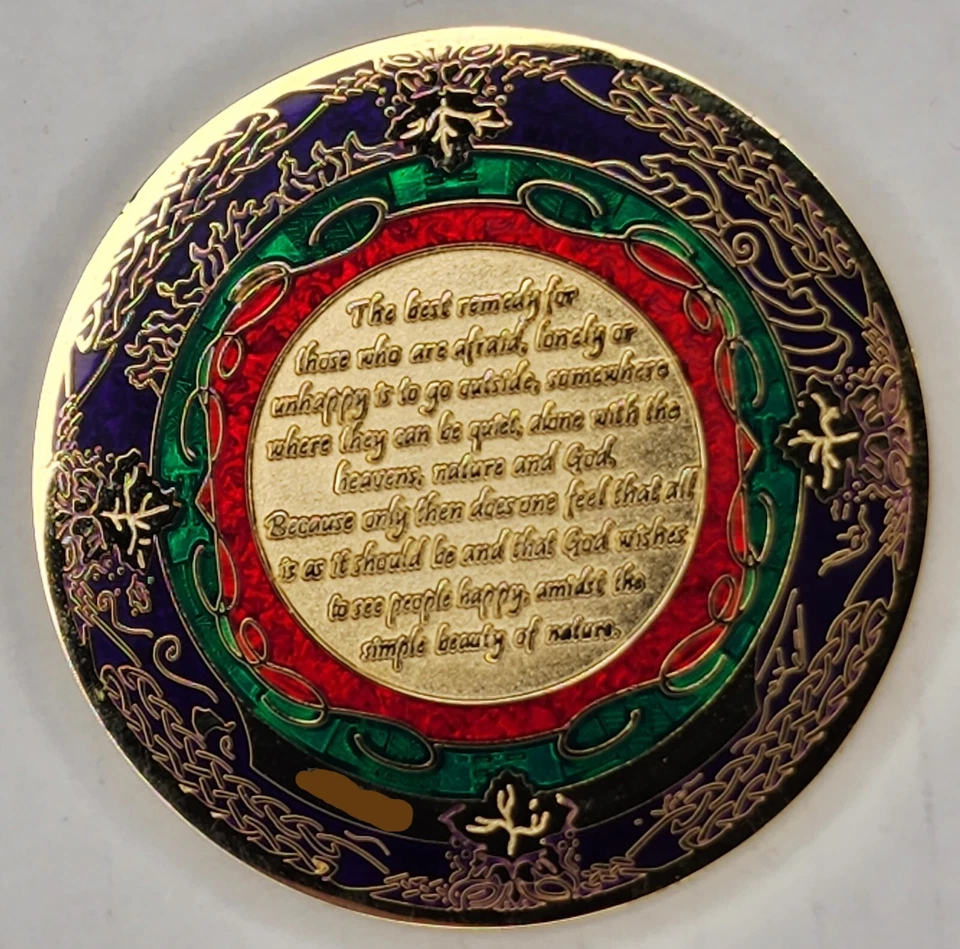 The best remedy for
those who are afraid, lonely or
unhappy is to go outside, somewhere
where they can be quiet, alone with the
heavens, nature and God,
Because only then does one feel that all
is as it should be and that God wishes
to see people happy, amidst the
simple beauty of nature.